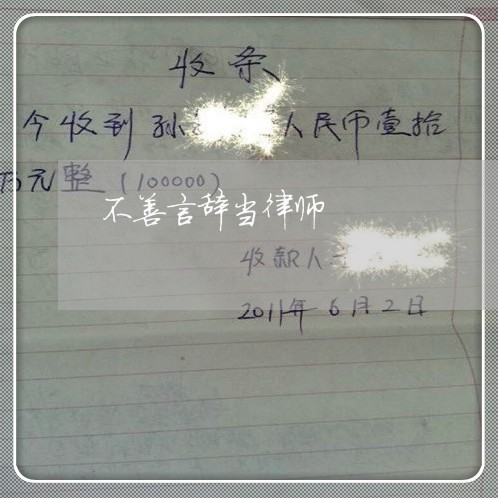 收条
今收到孙 人民币壹拾
万元整(100000)
不善言辞当律师
收款人
2011年6月2日